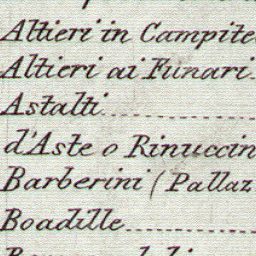 Altieri in Campite
Altieri ai Funari
Astalti
d'Aste o Rinuccin
Barberini (Pallaz
Boadille